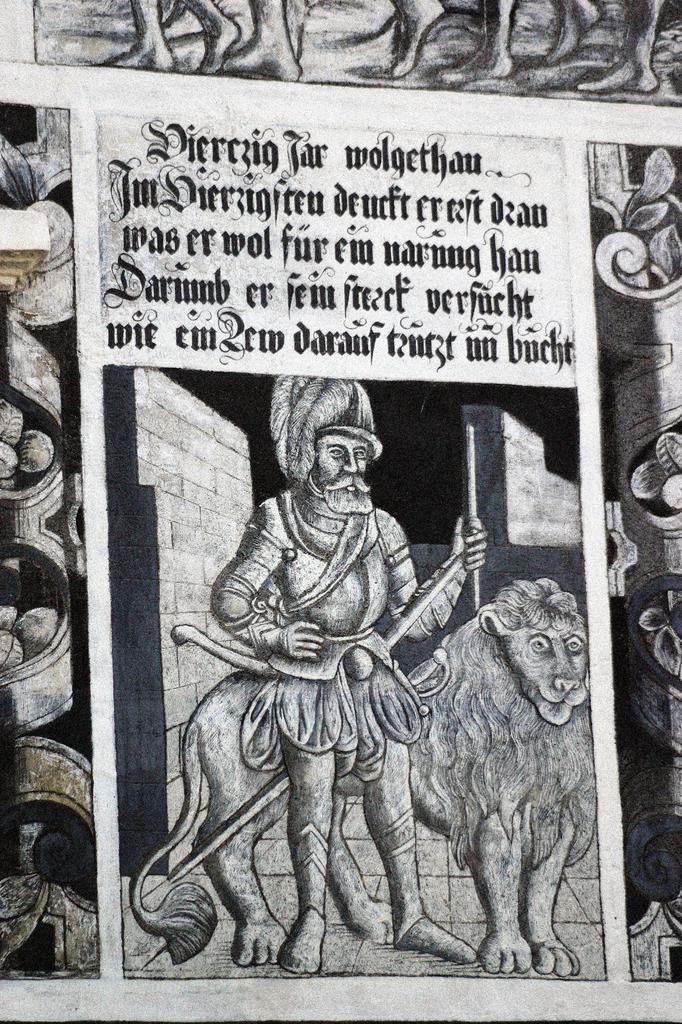 Vierczig Jar wolgethan
Im Vierzigsten denckt er erst dran
was er wol für ein narung han
Darumb er sein sterck versücht
wie ein Lew darauf trutzt un̄ bücht